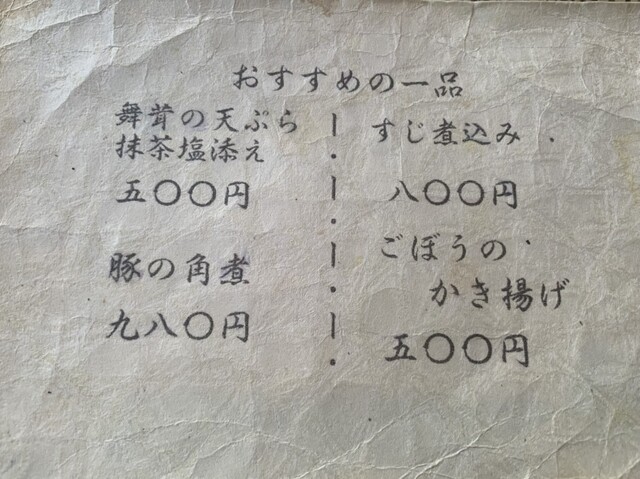 おすすめの一品
舞茸の天ぷら
抹茶塩添え
五〇〇円
豚の角煮
九八〇円
すじ煮込み
八〇〇円
ごぼうの
かき揚げ
五〇〇円